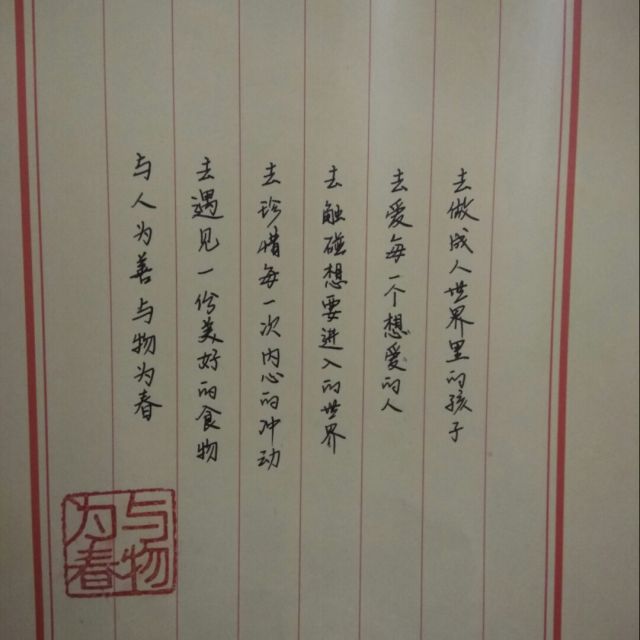 去做成人世界里的孩子
去爱每一个想爱的人
去触碰想要进入的世界
去珍惜每一次内心的冲动
去遇见一份美好的食物
与人为善与物为春
与物
为春